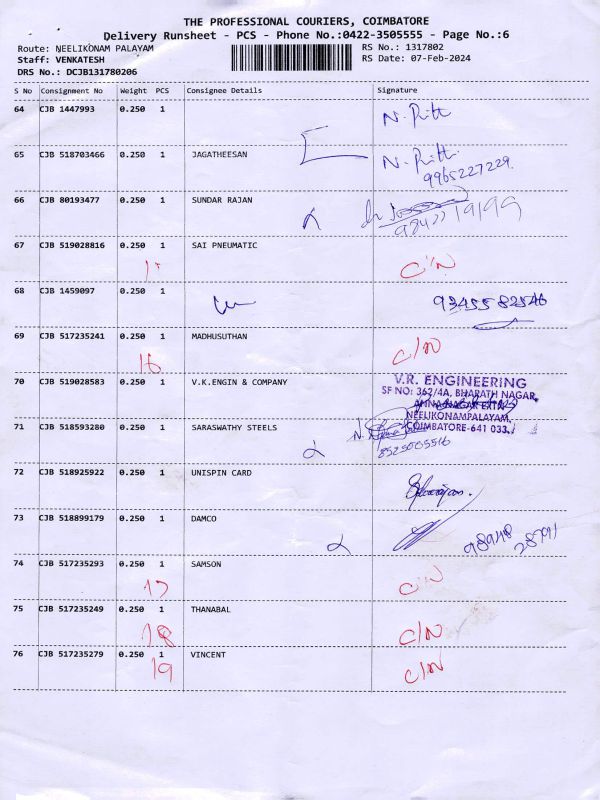 THE PROFESSIONAL COURIERS, COIMBATORE
Delivery Runsheet - PCS - Phone No.:0422-3505555 - Page No.:6
Route: NEELIKONAM PALAYAM
RS No.: 1317802
Staff: VENKATESH
RS Date: 07-Feb-2024
DRS No.: DCJB131780206
S No Consignment No Weight PCS Consignee Details Signature
64 CJB 1447993 0.250 1
65 CJB 518703466 0.250 1 JAGATHEESAN
9965227229
66 CJB 80193477 0.250 1 SUNDAR RAJAN
67 CJB 519028816 0.250 1 SAI PNEUMATIC
C/N
68 CJB 1459097 0.250 1
9345582546
69 CJB 517235241 0.250 1 MADHUSUTHAN
16 C/N
70 CJB 519028583 0.250 1 V.K.ENGIN & COMPANY
V.R. ENGINEERING
SF NO: 362/4A, BHARATH NAGAR,
ANNA NAGAR EXTN
NEELIKONAMPALAYAM,
COIMBATORE-641 033.
71 CJB 518593280 0.250 1 SARASWATHY STEELS
8525005516
72 CJB 518925922 0.250 1 UNISPIN CARD
73 CJB 518899179 0.250 1 DAMCO
98948
28791
74 CJB 517235293 0.250 1 SAMSON
17 C/N
75 CJB 517235249 0.250 1 THANABAL
18 C/N
76 CJB 517235279 0.250 1 VINCENT
19 C/N